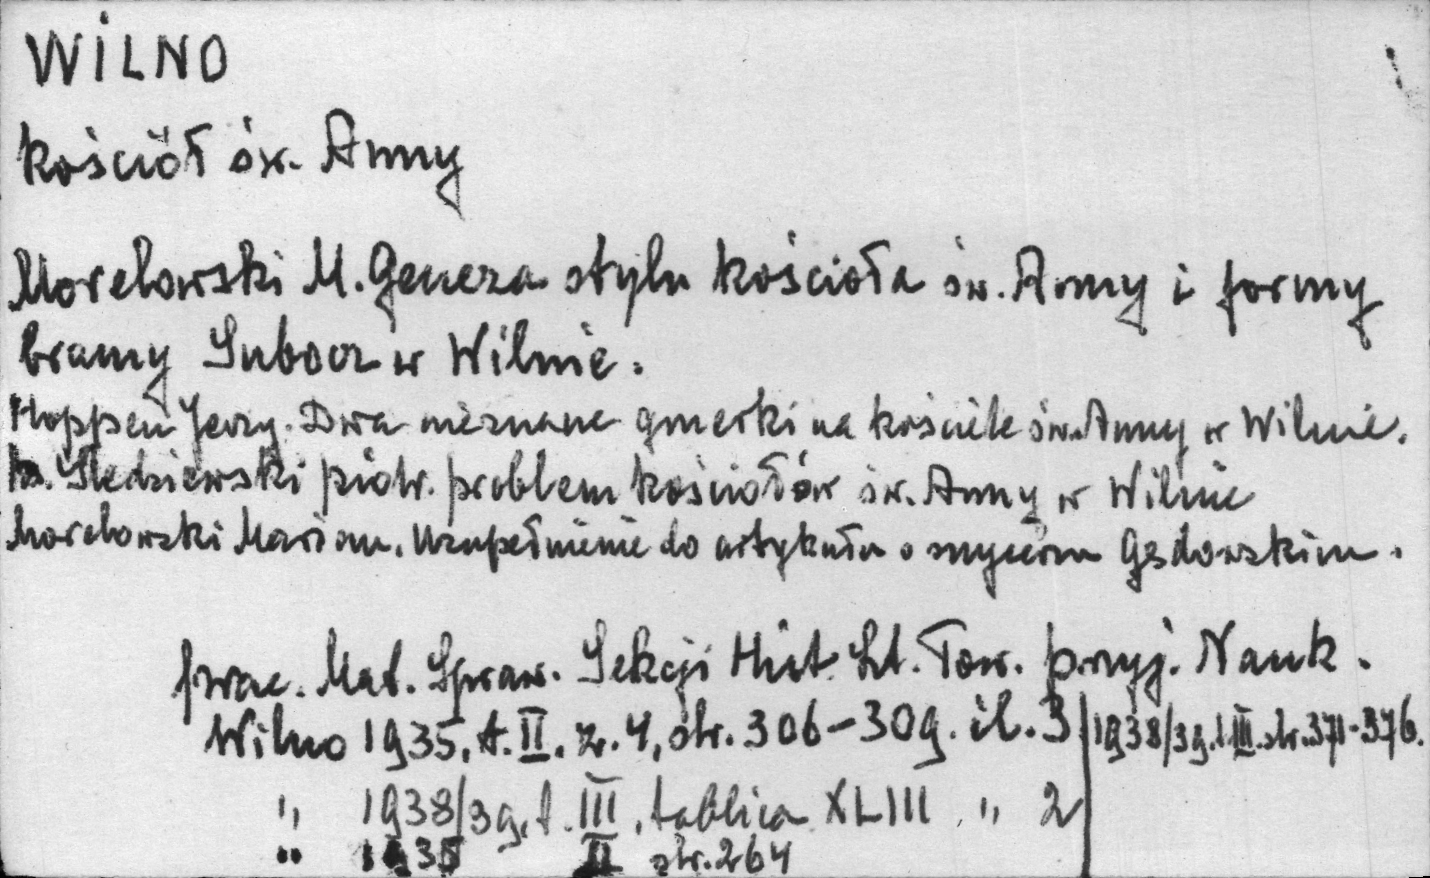 WILNO
kościół św. Anny
Morelowski M. Geneza stylu kościoła św. Anny i formy
bramy Subocz w Wilnie.
Hoppen Jerzy. Dwa nieznane gmerki na kościele św. Anny w Wilnie.
ks. Śledziewski piotr. problem kościołów św. Anny w Wilnie
Morelowski Marian. Uzupełnienie do artykułu o snycerzu Gądowskim.
prac. Mat. Spraw. Sekcji Hist. Szt. Tow. przyj. Nauk.
Wilno 1935, t. II. z. 4, str. 306-309. il. 3 1938/39. t. III. str. 371-376.
" 1938/39, t. III, tablica XLIII " 2
" 1935 II str. 264